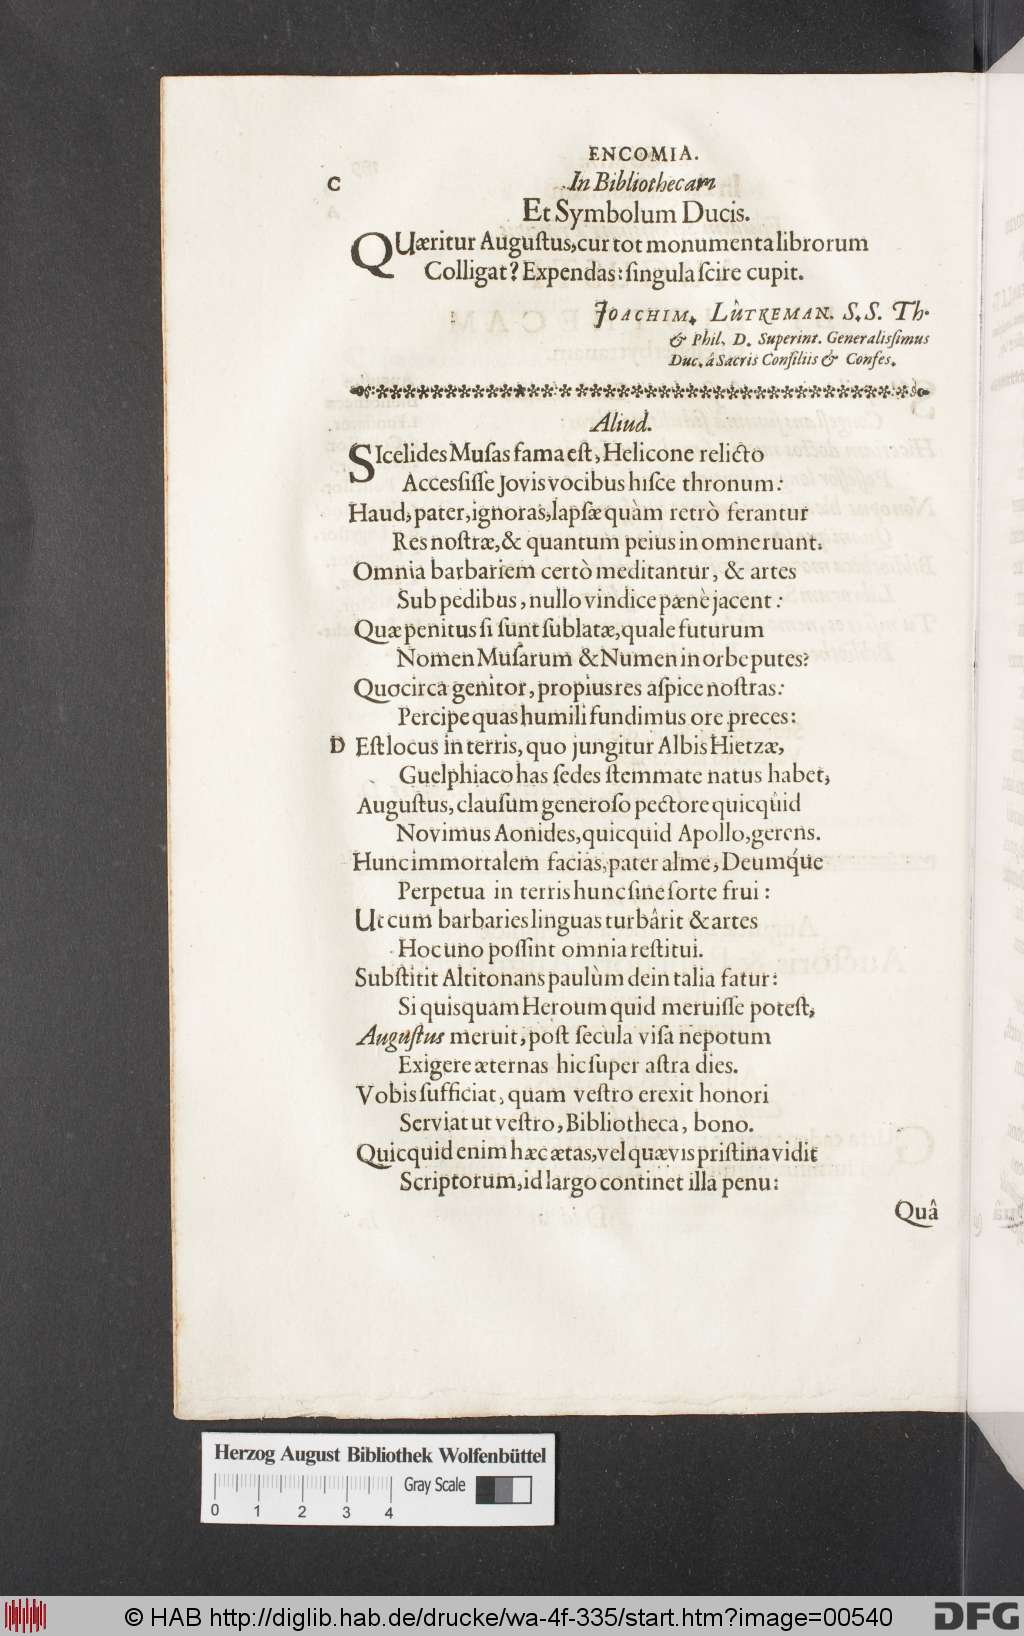 ENCOMIA.
C
In Bibliothecam
Et Symbolum Ducis.
QUæritur Auguſtus, cur tot monumenta librorum
Colligat? Expendas: ſingula ſcire cupit.
JOACHIM. LÙTKEMAN. S.S. Th.
& Phil. D. Superint. Generaliſſimus
Duc. â Sacris Conſiliis & Confes.
Aliud.
SIcelides Muſas fama eſt, Helicone relicto
Acceſſiſſe Jovis vocibus hiſce thronum:
Haud, pater, ignoras, lapſæ quàm retrò ferantur
Res noſtræ, & quantum peius in omne ruant.
Omnia barbariem certò meditantur, & artes
Sub pedibus, nullo vindice pænè jacent:
Quæ penitus ſi ſunt ſublatæ, quale futurum
Nomen Muſarum & Numen in orbe putes?
Quocirca genitor, propius res aſpice noſtras:
Percipe quas humili fundimus ore preces:
D Eſt locus in terris, quo jungitur Albis Hietzæ,
Guelphiaco has ſedes ſtemmate natus habet,
Auguſtus, clauſum generoſo pectore quicquid
Novimus Aonides, quicquid Apollo, gerens.
Hunc immortalem facias, pater alme, Deumq́ue
Perpetua in terris hunc ſine ſorte frui:
Ut cum barbaries linguas turbârit & artes
Hoc uno poſſint omnia reſtitui.
Subſtitit Altitonans paulùm dein talia fatur:
Si quisquam Heroum quid meruiſſe poteſt,
Auguſtus meruit, poſt ſecula viſa nepotum
Exigere æternas hic ſuper aſtra dies.
Vobis ſufficiat, quam veſtro erexit honori
Serviat ut veſtro, Bibliotheca, bono.
Quicquid enim hæc ætas, vel quævis priſtina vidit
Scriptorum, id largo continet illa penu:
Quâ
Herzog August Bibliothek Wolfenbüttel
Gray Scale
0 1 2 3 4
© HAB http://diglib.hab.de/drucke/wa-4f-335/start.htm?image=00540
DFG